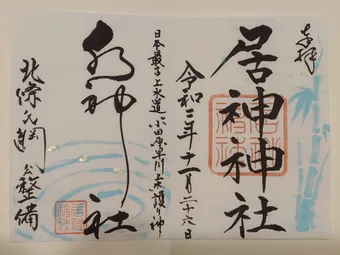 奉拝
居神神社
令和三年十一月二十六日
日本最古上水道 小田原早川上水護り神
水神社
北條氏綱公整備